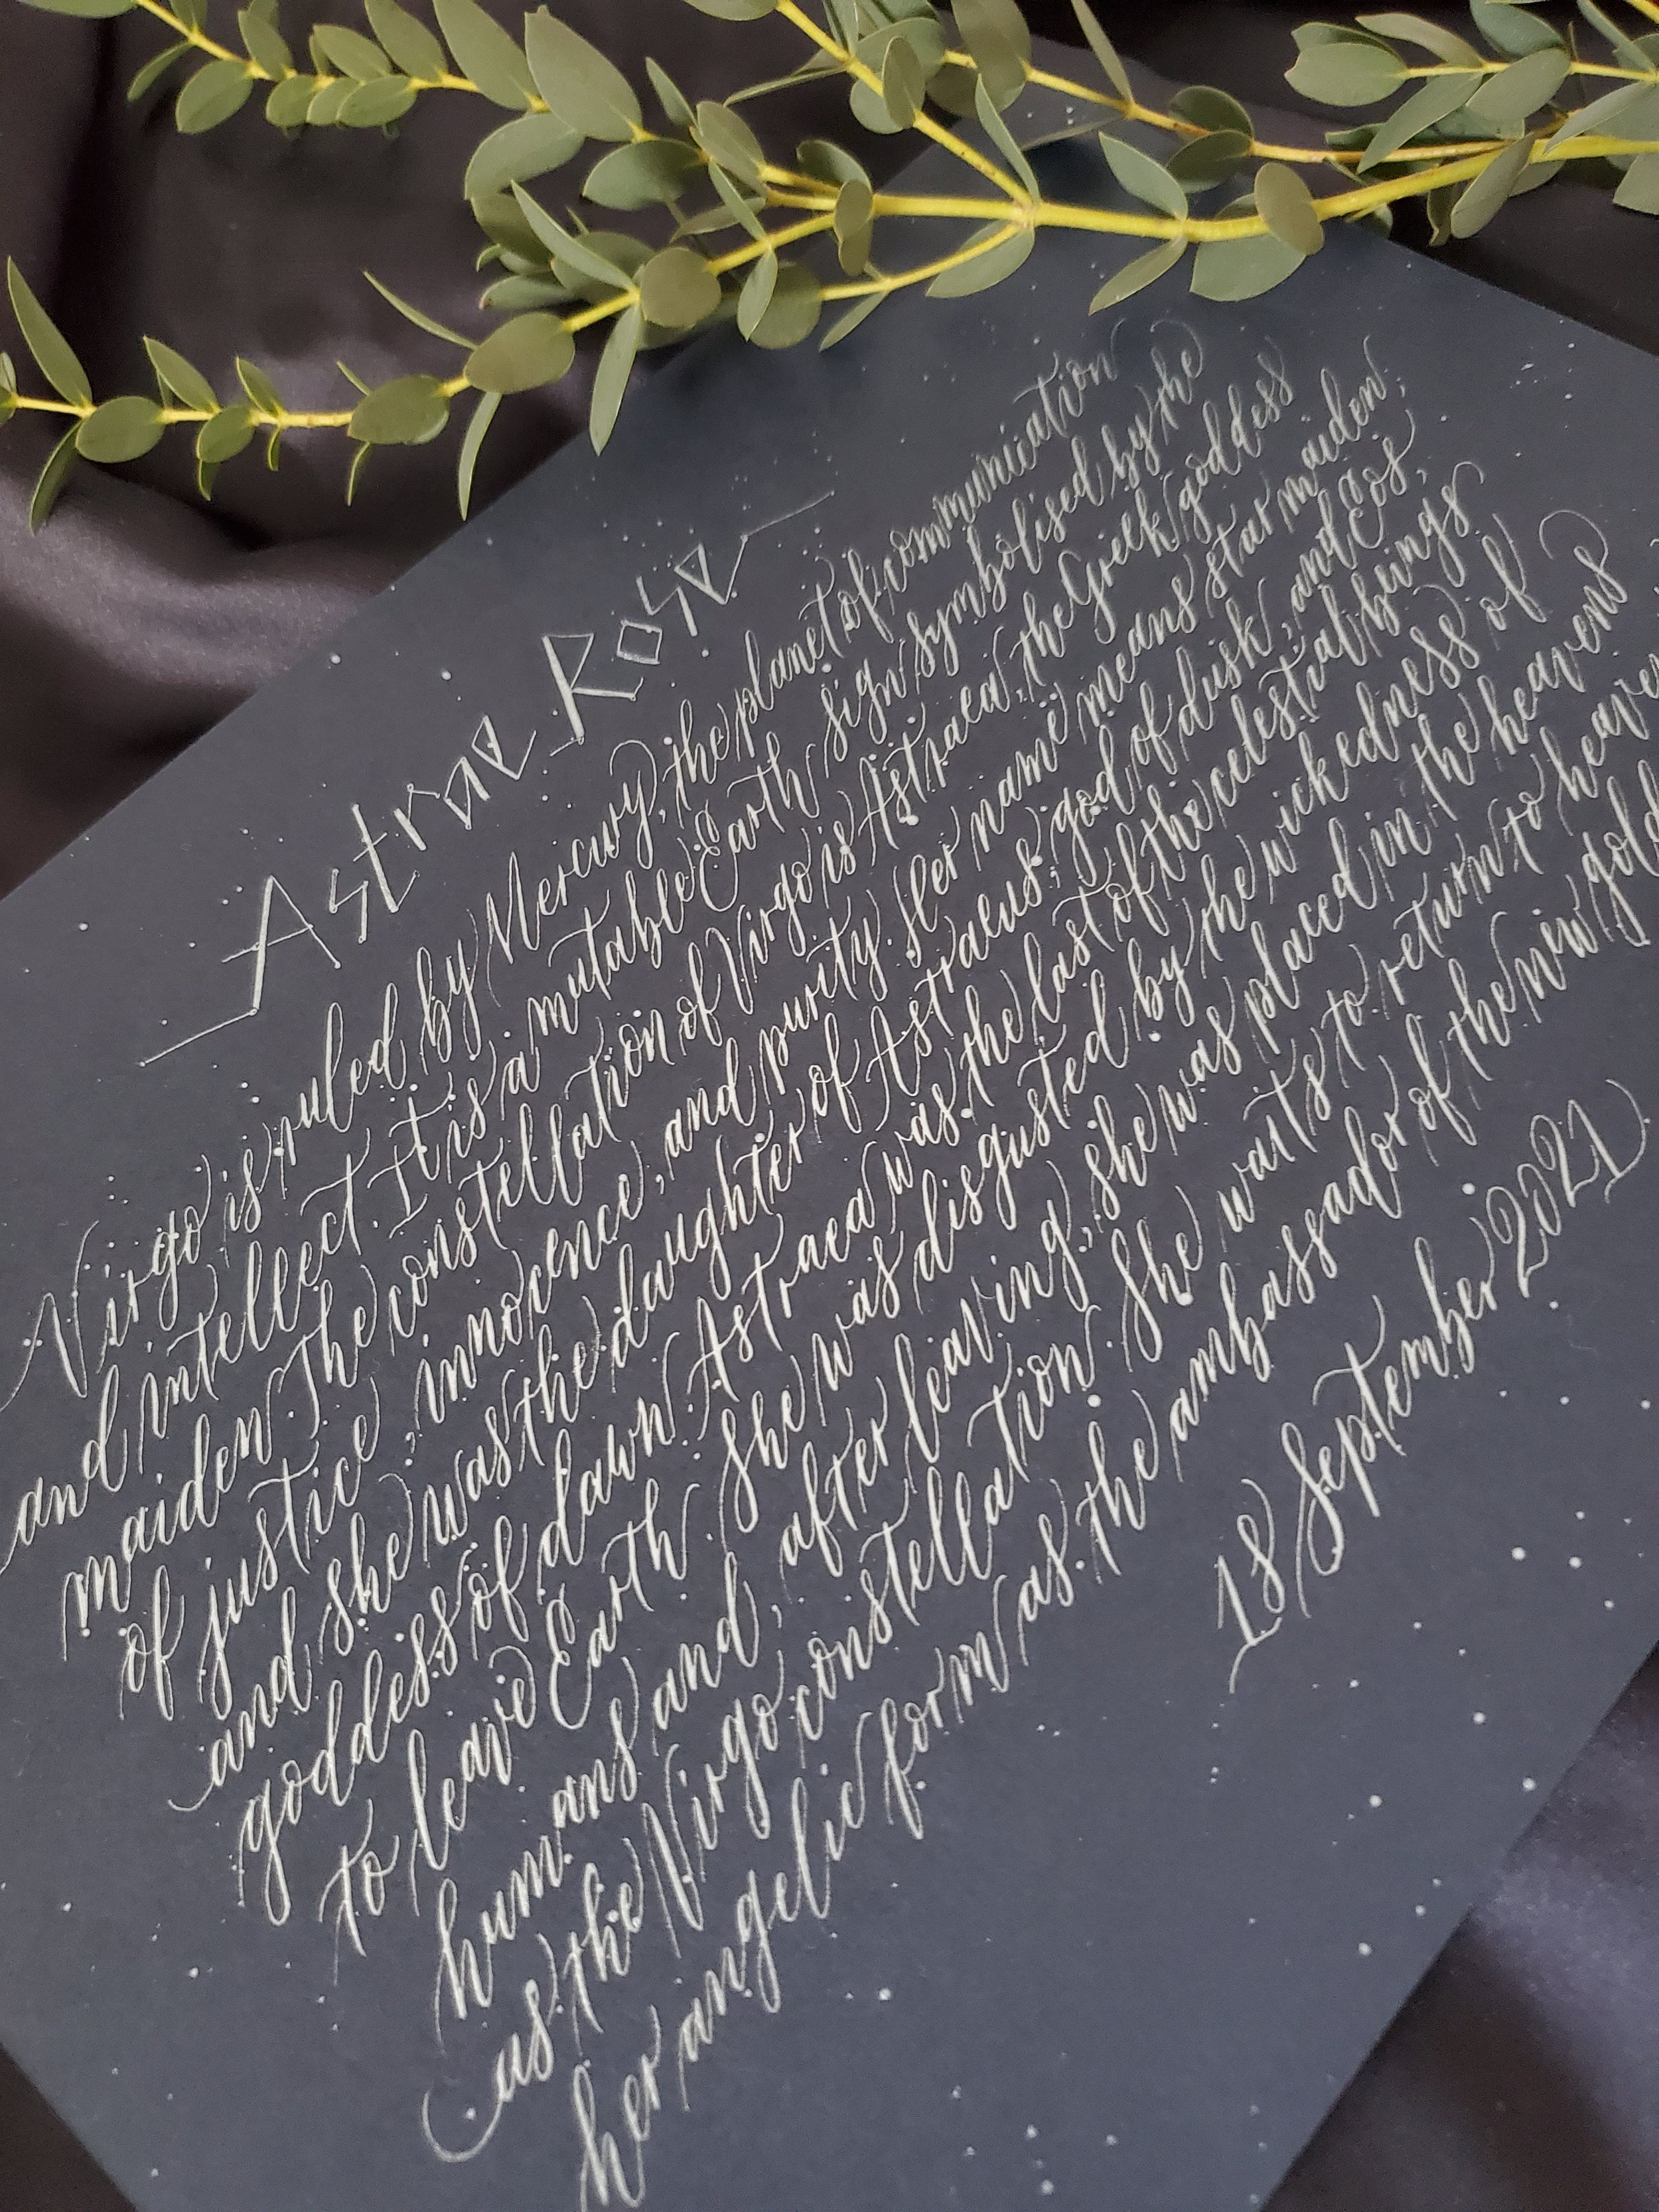 Astrae Rose
Virgo is ruled by Mercury, the planet of communication
and intellect. It is a mutable Earth sign symbolised by the
maiden. The constellation of Virgo is Astraea, the Greek goddess
of justice, innocence, and purity. Her name means star maiden,
and she was the daughter of Astraeus, god of dusk, and Eos,
goddess of dawn. Astraea was the last of the celestial beings
to leave Earth. She was disgusted by the wickedness of
humans and, after leaving, she was placed in the heavens
as the Virgo constellation. She waits to return to
her angelic form as the ambassador of the new gold
18 September 2021